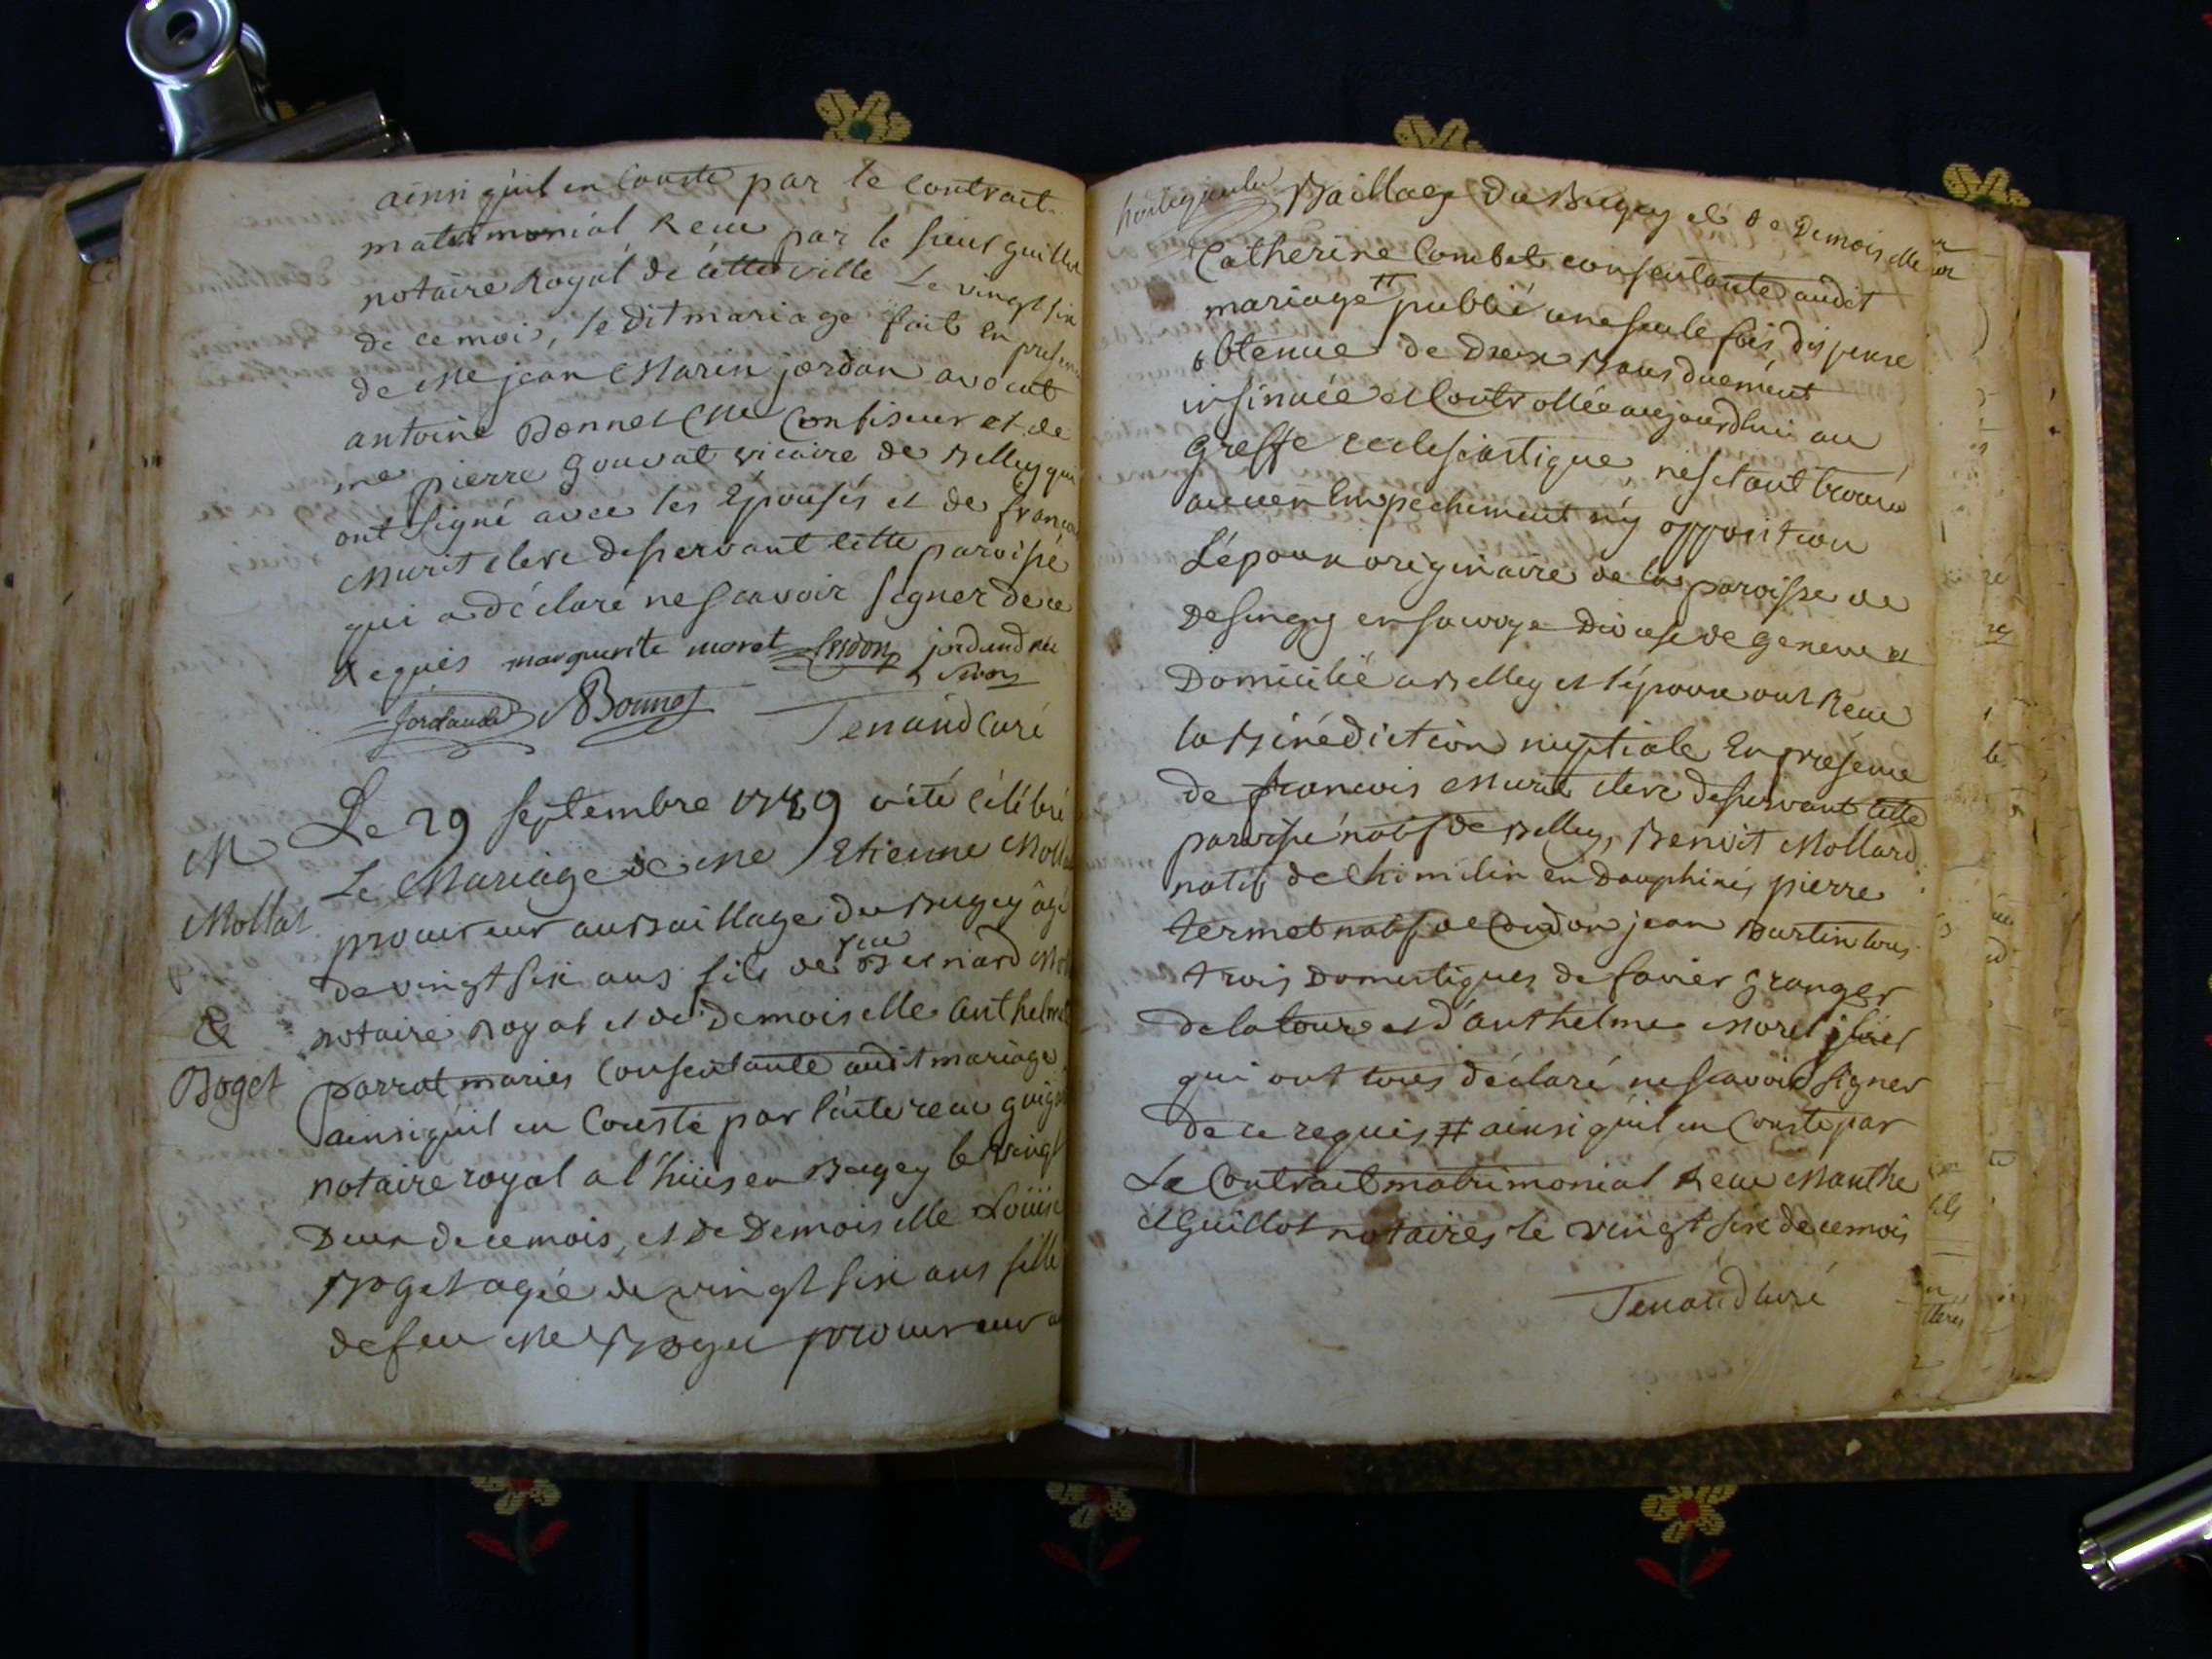 ainsi qu'il en Conste par le Contrait
matrimonial Receu par le sieur guillot
notaire Royal de cette ville Le vingt six
de ce mois, le dit mariage fait en presence
de Me jean Marin jordan avocat
antoine Bonnet Me Confiseur et de
me pierre gouvat vicaire de Belley qui
ont signé avec les Epousés et de francois
Murit clerc desservant cette paroisse
qui a déclaré ne scavoir signer de ce
requis marguerite moret jordand
Jordand Bonnet Tenand Curé
Le 29 septembre 1789 a été célébré
M
Le Mariage de Me Etienne
Mollat
procureur au Baillage du Bugey âgé
de vingt six ans fils de feu Bernard
&
notaire Royal et de Demoiselle anthelme
Boget
parrat mariés Consentante audit mariage
ainsi qu'il en Conste par l'acte receu
notaire royal a l'huis en Bugey le vingt
Deux de ce mois, et de Demoiselle Loüise
Boget agée de vingt six ans fille
de feu Me Boget procureur au
Baillage du Bugey et de Demoiselle
Catherine Combet consentante audit
mariage # publié une seule fois dispense
obtenue de Deux Bans duement
insinuée et Controllée aujourdhui au
greffe ecclesiastique, nesetant trouvé
aucun Empechement n'y opposition
L'époux originaire de la paroisse de
Desingy en savoye Diocese de geneve et
Domicilié a Belley et l'épouse ont Receu
la Bénédiction nuptiale En presence
de francois Murit clerc desservant cette
paroisse natif de Belley, Benoit Mollard
natif de Chimilin en Dauphiné, pierre
termet natif de Condon jean Burtin tous
trois Domestiques de favier granger
de la tour et d'anthelme Morel
qui ont tous déclaré ne scavoir signer
de ce requis # ainsi qu'il en Conste par
Le Contrait matrimonial Receu Manthe
et Guillot notaires le vingt six de ce mois
Tenand curé